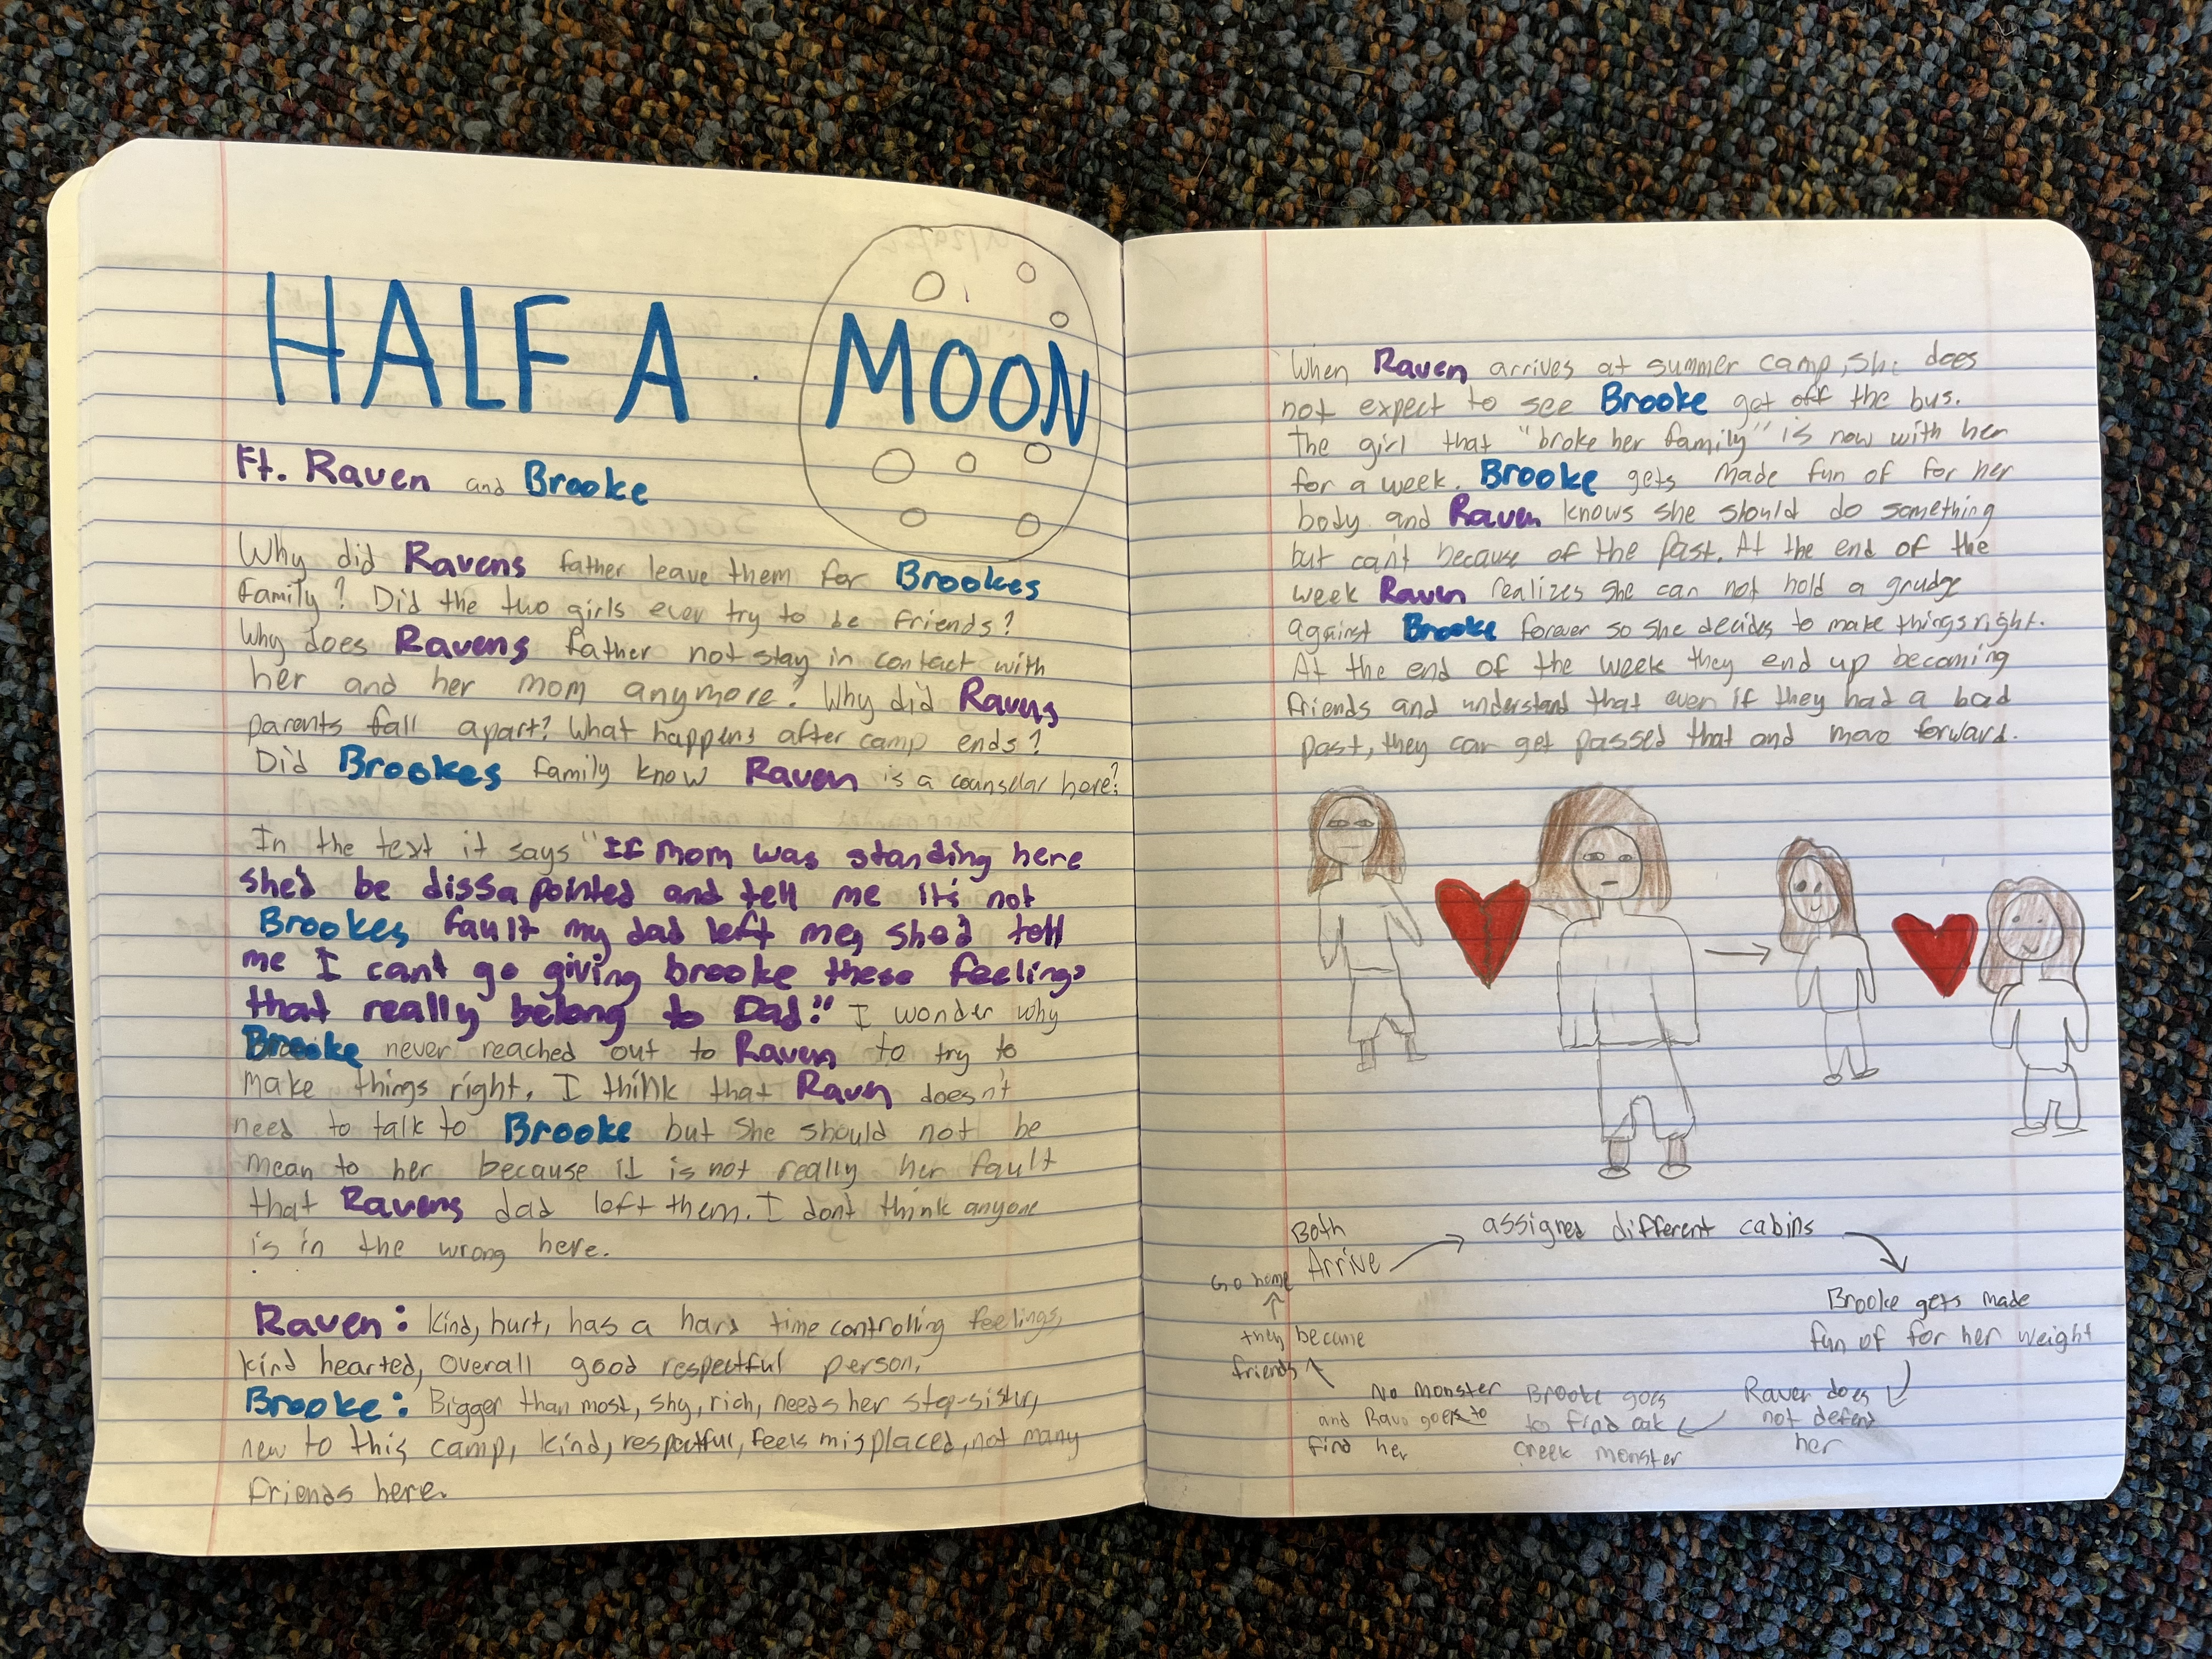 HALF A MOON
Ft. Raven and Brooke
Why did Ravens father leave them for Brookes
family? Did the two girls ever try to be friends?
Why does Ravens father not stay in contact with
her and her mom anymore? Why did Ravens
parents fall apart? What happens after camp ends?
Did Brookes family know Raven is a counselar here?
In the text it says "If mom was standing here
she'd be dissapointed and tell me it's not
Brookes fault my dad left me, she'd tell
me I cant go giving brooke these feelings
that really belong to Dad." I wonder why
Brooke never reached out to Raven to try to
make things right. I think that Raven doesn't
need to talk to Brooke but she should not be
mean to her because it is not really her fault
that Ravens dad left them. I dont think anyone
is in the wrong here.
Raven: kind, hurt, has a hard time controlling feelings,
kind hearted, overall good respectful person.
Brooke: Bigger than most, shy, rich, needs her step-sister,
new to this camp, kind, respectful, feels misplaced, not many
friends here.
When Raven arrives at summer camp, she does
not expect to see Brooke get off the bus.
The girl that "broke her family" is now with her
for a week. Brooke gets made fun of for her
body and Raven knows she should do something
but can't because of the past. At the end of the
week Raven realizes she can not hold a grudge
against Brooke forever so she decides to make things right.
At the end of the week they end up becoming
friends and understand that even if they had a bad
past, they can get passed that and move forward.
Both
Arrive
assigned different cabins
Brooke gets made
fun of for her weight
Raven does
not defend
her
Brooke goes
to find oak
creek monster
No monster
and Rave goes to
find her
they became
friends
Go home